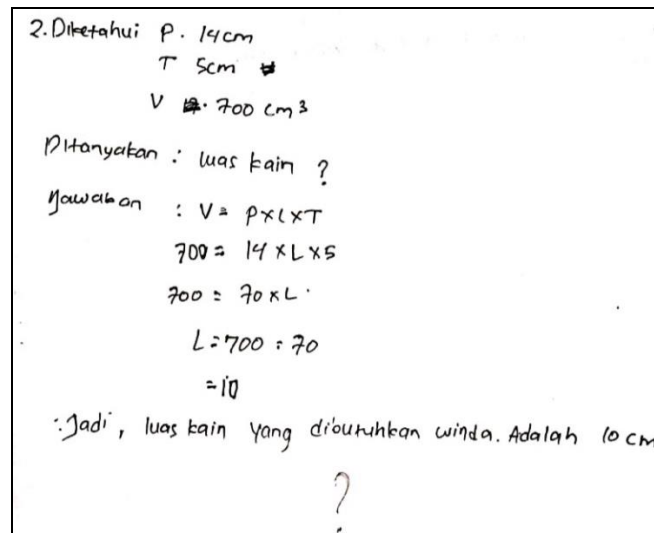 2. Diketahui P. 14cm
T 5cm
V . 700 cm³
Ditanyakan : luas kain ?
Jawaban : V = P×L×T
700 = 14 × L × 5
700 = 70 × L .
L = 700 : 70
= 10
∴ Jadi, luas kain yang dibutuhkan winda. Adalah 10 cm
?